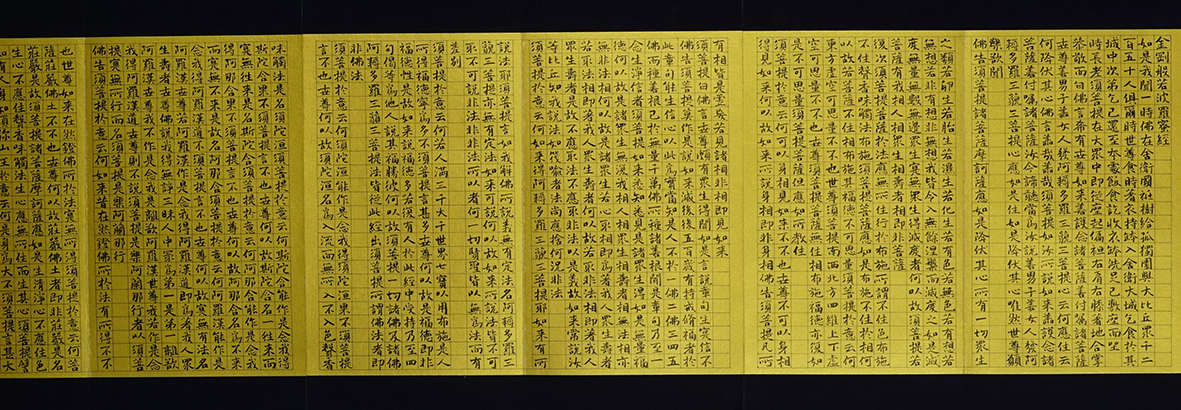 金剛般若波羅蜜經
如是我聞一時佛在舍衛國祇樹給孤獨園與大比丘眾千二
百五十人俱爾時世尊食時著衣持鉢入舍衛大城乞食於其
城中次第乞已還至本處飯食訖收衣鉢洗足已敷座而坐
時長老須菩提在大眾中即從座起偏袒右肩右膝著地合掌
恭敬而白佛言希有世尊如來善護念諸菩薩善付囑諸菩薩
世尊善男子善女人發阿耨多羅三藐三菩提心應云何住云
何降伏其心佛言善哉善哉須菩提如汝所說如來善護念諸
菩薩善付囑諸菩薩汝今諦聽當為汝說善男子善女人發阿
耨多羅三藐三菩提心應如是住如是降伏其心唯然世尊願
樂欲聞
佛告須菩提諸菩薩摩訶薩應如是降伏其心所有一切眾生
之類若卵生若胎生若濕生若化生若有色若無色若有想若
無想若非有想非無想我皆令入無餘涅槃而滅度之如是滅
度無量無數無邊眾生實無眾生得滅度者何以故須菩提若
菩薩有我相人相眾生相壽者相即非菩薩
復次須菩提菩薩於法應無所住行於布施所謂不住色布施
不住聲香味觸法布施須菩提菩薩應如是布施不住於相何
以故若菩薩不住相布施其福德不可思量須菩提於意云何
東方虛空可思量不不也世尊須菩提南西北方四維上下虛
空可思量不不也世尊須菩提菩薩無住相布施福德亦復如
是不可思量須菩提菩薩但應如所教住
須菩提於意云何可以身相見如來不不也世尊不可以身相
得見如來何以故如來所說身相即非身相佛告須菩提凡所
有相皆是虛妄若見諸相非相即見如來
須菩提白佛言世尊頗有眾生得聞如是言說章句生實信不
佛告須菩提莫作是說如來滅後後五百歲有持戒修福者於
此章句能生信心以此為實當知是人不於一佛二佛三四五
佛而種善根已於無量千萬佛所種諸善根聞是章句乃至一
念生淨信者須菩提如來悉知悉見是諸眾生得如是無量福
德何以故是諸眾生無復我相人相眾生相壽者相無法相亦
無非法相何以故是諸眾生若心取相即為著我人眾生壽者
若取法相即著我人眾生壽者何以故若取非法相即著我人
眾生壽者是故不應取法不應取非法以是義故如來常說汝
等比丘知我說法如筏喻者法尚應捨何況非法
須菩提於意云何如來得阿耨多羅三藐三菩提耶如來有所
說法耶須菩提言如我解佛所說義無有定法名阿耨多羅三
藐三菩提亦無有定法如來可說何以故如來所說法皆不可
取不可說非法非非法所以者何一切賢聖皆以無為法而有
差別
須菩提於意云何若人滿三千大千世界七寶以用布施是人
所得福德寧為多不須菩提言甚多世尊何以故是福德即非
福德性是故如來說福德多若復有人於此經中受持乃至四
句偈等為他人說其福勝彼何以故須菩提一切諸佛及諸佛
阿耨多羅三藐三菩提法皆從此經出須菩提所謂佛法者即
非佛法
須菩提於意云何須陀洹能作是念我得須陀洹果不須菩提
言不也世尊何以故須陀洹名為入流而無所入不入色聲香
味觸法是名須陀洹須菩提於意云何斯陀含能作是念我得
斯陀含果不須菩提言不也世尊何以故斯陀含名一往來而
實無往來是名斯陀含須菩提於意云何阿那含能作是念我
得阿那含果不須菩提言不也世尊何以故阿那含名為不來
而實無不來是故名阿那含須菩提於意云何阿羅漢能作是
念我得阿羅漢道不須菩提言不也世尊何以故實無有法名
阿羅漢世尊若阿羅漢作是念我得阿羅漢道即為著我人眾
生壽者世尊佛說我得無諍三昧人中最為第一是第一離欲
阿羅漢我不作是念我是離欲阿羅漢世尊我若作是念
我得阿羅漢道世尊則不說須菩提是樂阿蘭那行者以須菩
提實無所行而名須菩提是樂阿蘭那行
佛告須菩提於意云何如來昔在然燈佛所於法有所得不不
也世尊如來在然燈佛所於法實無所得須菩提於意云何菩
薩莊嚴佛土不不也世尊何以故莊嚴佛土者即非莊嚴是名
莊嚴是故須菩提諸菩薩摩訶薩應如是生清淨心不應住色
生心不應住聲香味觸法生心應無所住而生其心須菩提譬
如有人身如須彌山王於意云何是身為大不須菩提言甚大